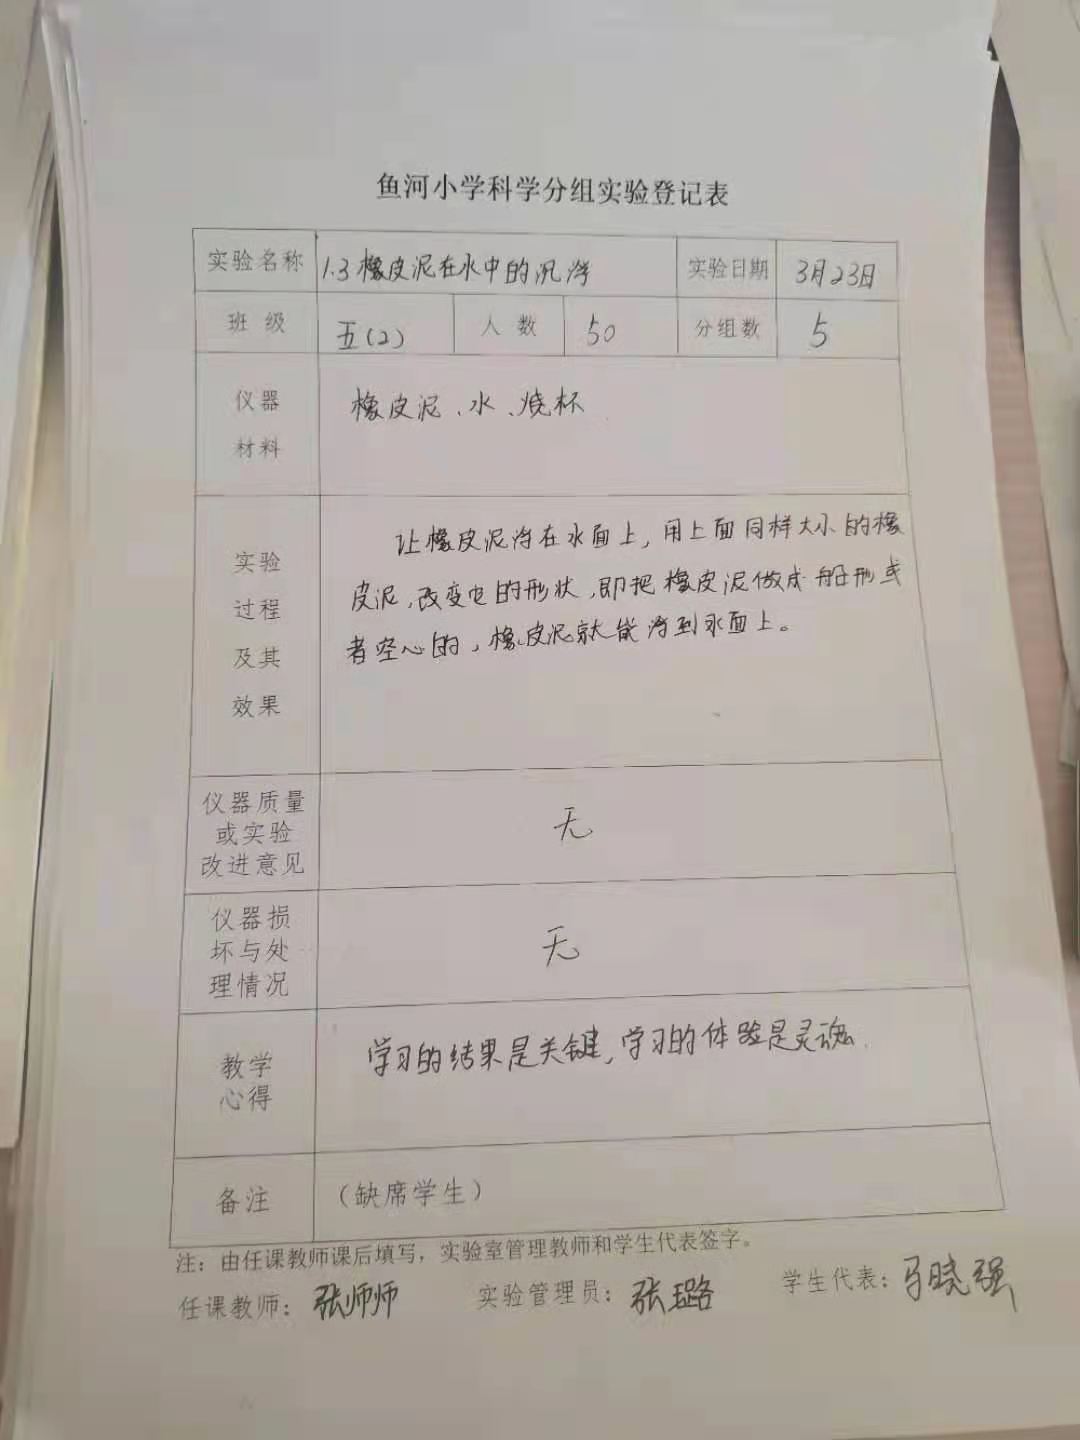 鱼河小学科学分组实验登记表
实验名称 1.3橡皮泥在水中的沉浮 实验日期 3月23日
班 级 五(2) 人 数 50 分组数 5
仪器 橡皮泥、水、烧杯
材料
实验 让橡皮泥浮在水面上,用上面同样大小的橡
过程 皮泥,改变它的形状,即把橡皮泥做成船形或
及其 者空心的,橡皮泥就能浮到水面上。
效果
仪器质量
或实验 无
改进意见
仪器损
坏与处 无
理情况
教学 学习的结果是关键,学习的体验是灵魂.
心得
备注 (缺席学生)
注:由任课教师课后填写,实验室管理教师和学生代表签字。
任课教师:张师师 实验管理员:张璐 学生代表:马晓强